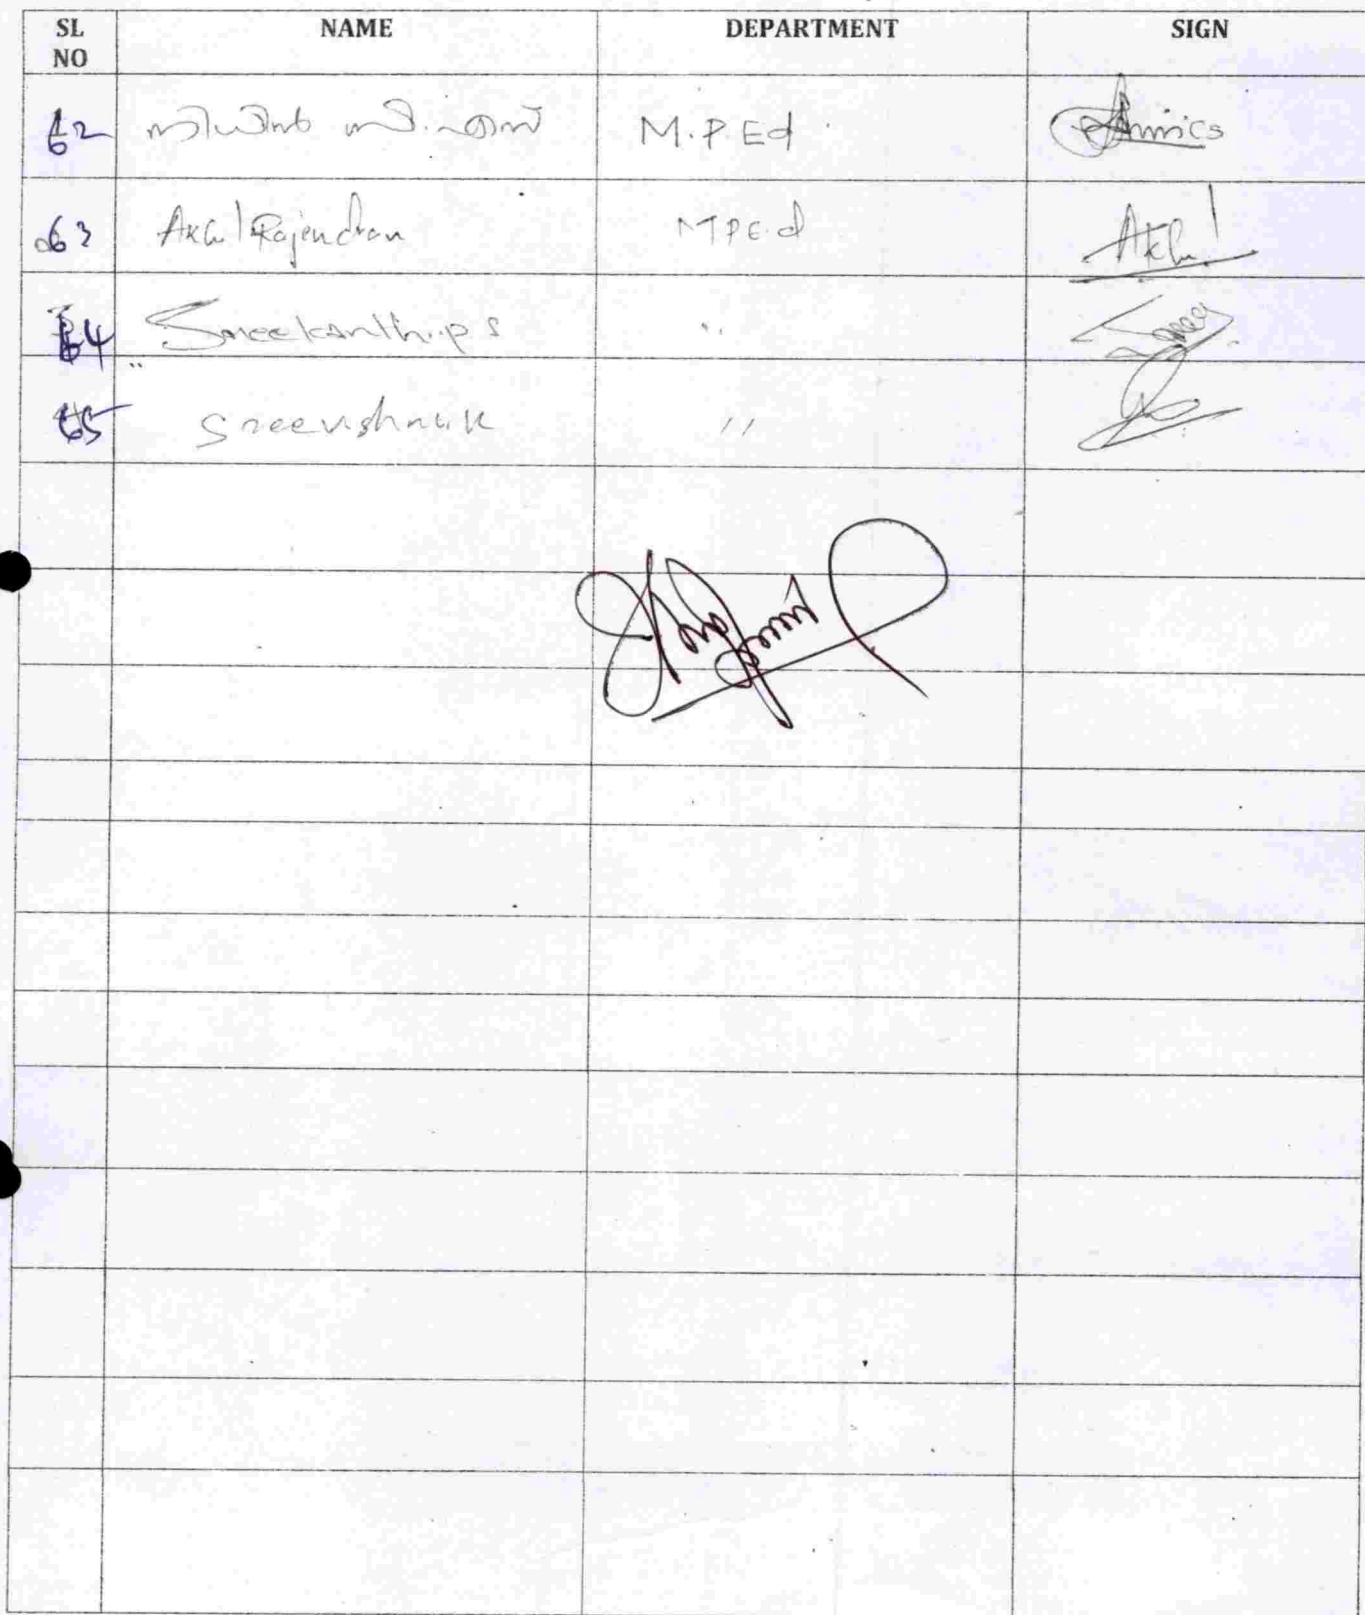 SL NO NAME DEPARTMENT SIGN
62 M.P.Ed
63 Akhil Rajendran MPE.d Akhil
64 Sreekanth.p s " Sree
65 Sreevishnu k "